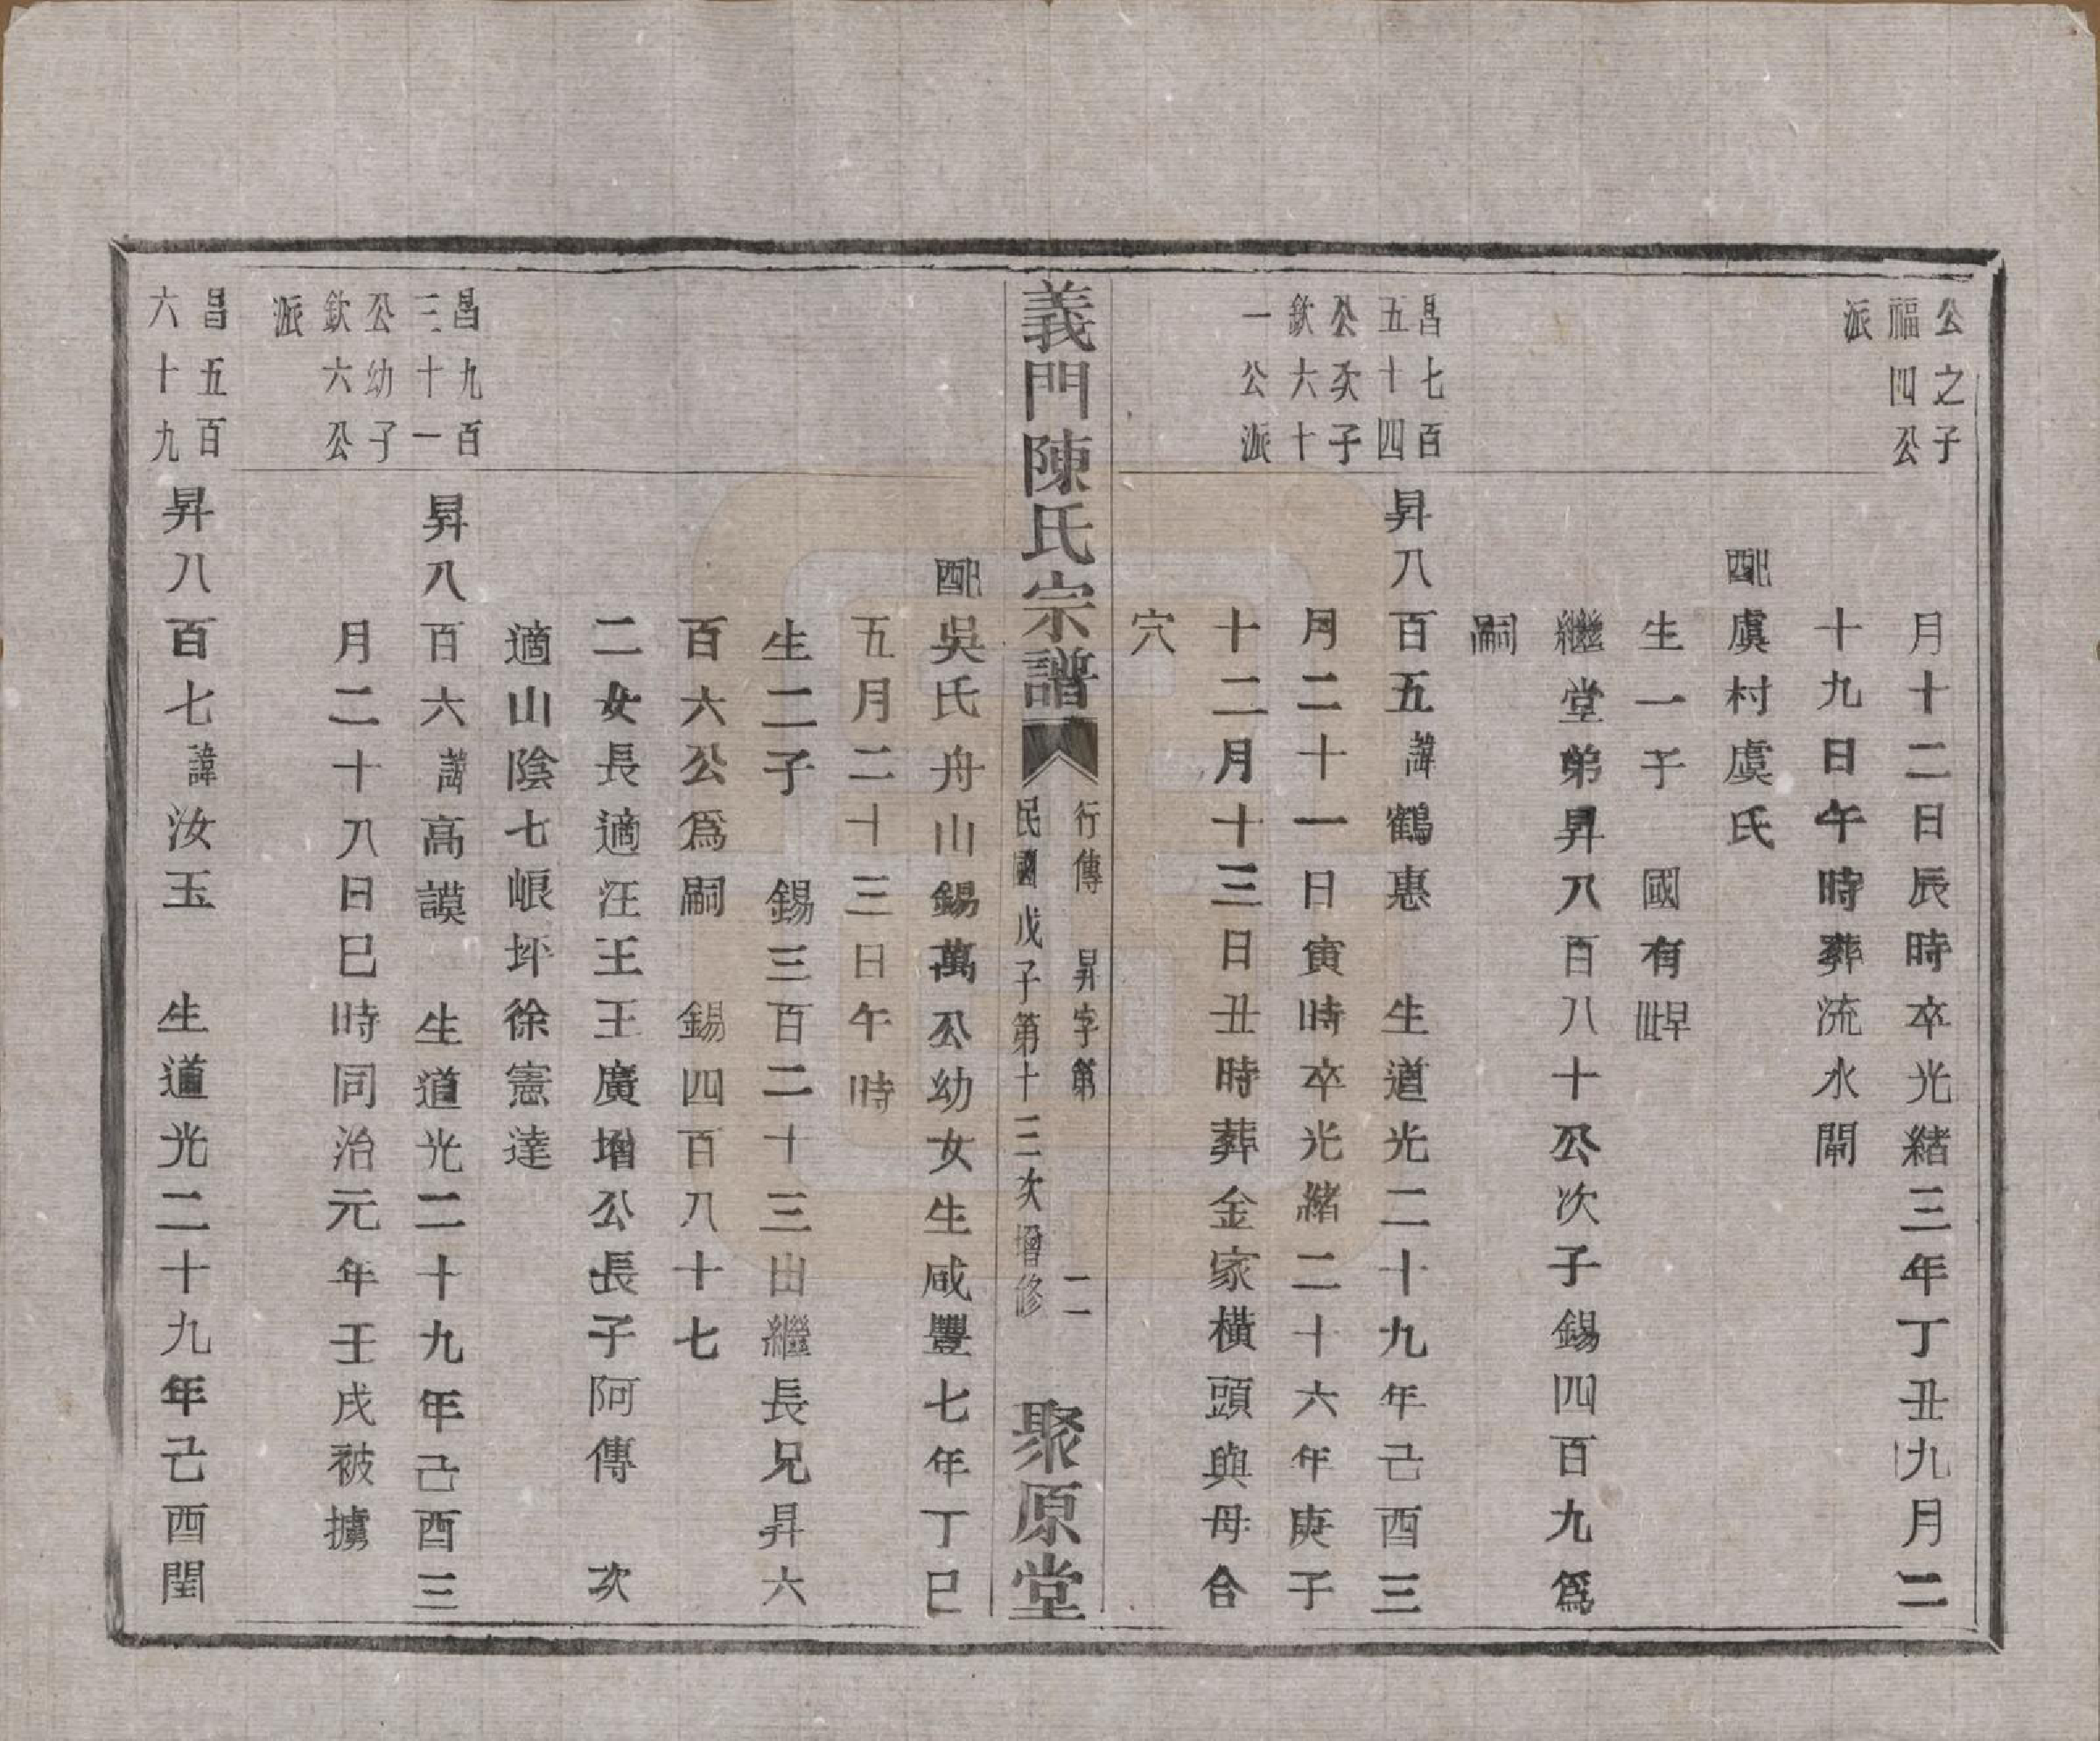 公之子
福四公
派
月十二日辰時卒光緒三年丁丑九月二
十九日午時葬流水閘
配虞村虞氏
生一子　國有
繼堂弟昇八百八十公次子錫四百九爲
嗣
昌七百
五十四
公次子
欽六十
一公派
昇八百五諱鶴惠　生道光二十九年己酉三
月二十一日寅時卒光緒二十六年庚子
十二月十三日丑時葬金家橫頭與母合
穴
義門陳氏宗譜
行傳　昇字第　二
民國戊子第十三次增修
聚原堂
配吳氏舟山錫萬公幼女生咸豐七年丁巳
五月二十三日午時
生二子　錫三百二十三出繼長兄昇六
百六公爲嗣　錫四百八十七
二女長適汪王王廣增公長子阿傳　次
適山陰七峎坪徐憲達
昌九百
三十一
公幼子
欽六公
派
昇八百六諱高謨　生道光二十九年己酉三
月二十八日巳時同治元年壬戌被擄
昌五百
六十九
昇八百七諱汝玉　生道光二十九年己酉閏